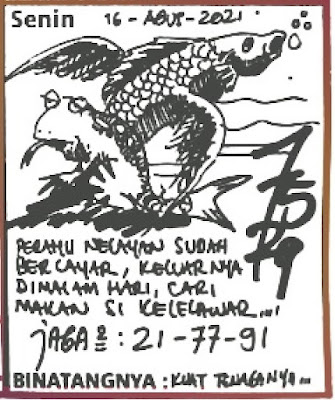 Senin 16 - AGUS - 2021
7519
PERAHU NELAYAN SUDAH
BERLAYAR, KELUARNYA
DIMALAM HARI, CARI
MAKAN SI KELELAWAR...!
JAGA 2 : 21-77-91
BINATANGNYA : KUAT TENAGANYA...